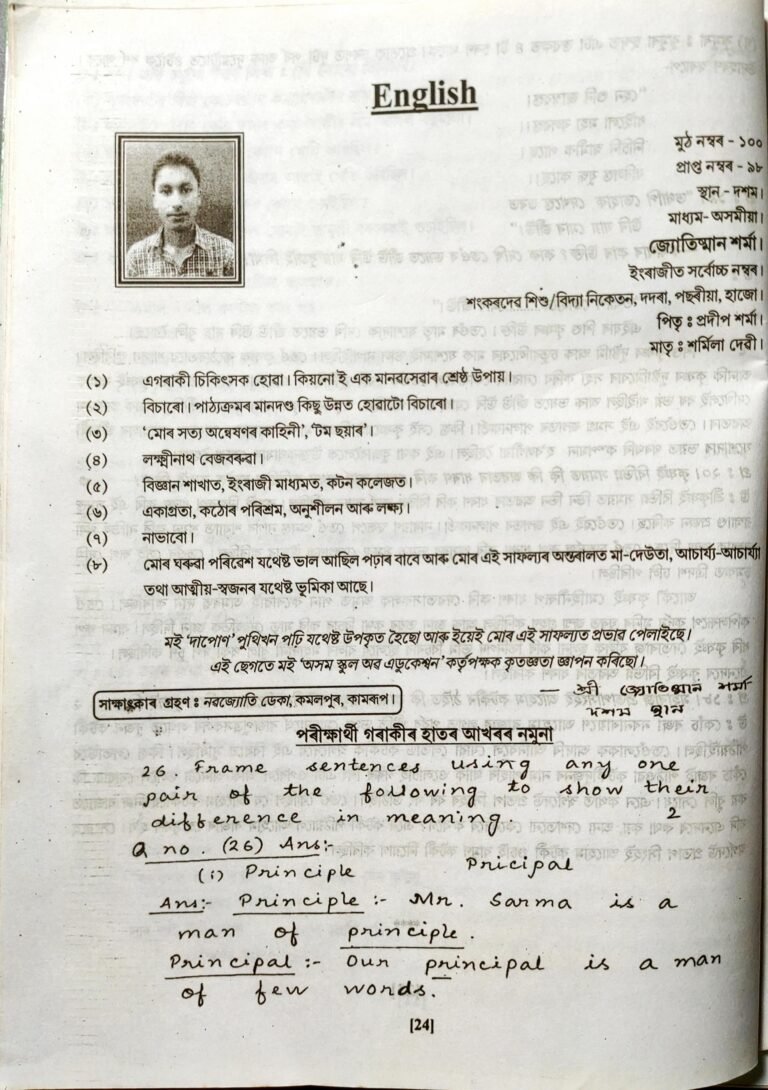 English
মুঠ নম্বৰ - ১০০
প্ৰাপ্ত নম্বৰ - ৯৮
স্থান - দশম।
মাধ্যম- অসমীয়া।
জ্যোতিষ্মান শৰ্মা।
ইংৰাজীত সৰ্বোচ্চ নম্বৰ।
শংকৰদেব শিশু/বিদ্যা নিকেতন, দদৰা, পছৰীয়া, হাজো।
পিতৃ ঃ প্ৰদীপ শৰ্মা।
মাতৃ ঃ শৰ্মিলা দেৱী।
(১) এগৰাকী চিকিৎসক হোৱা। কিয়নো ই এক মানৱসেৱাৰ শ্ৰেষ্ঠ উপায়।
(২) বিচাৰো। পাঠ্যক্ৰমৰ মানদণ্ড কিছু উন্নত হোৱাটো বিচাৰো।
(৩) ‘মোৰ সত্য অন্বেষণৰ কাহিনী’, ‘টম ছয়াৰ’।
(৪) লক্ষ্মীনাথ বেজবৰুৱা।
(৫) বিজ্ঞান শাখাত, ইংৰাজী মাধ্যমত, কটন কলেজত।
(৬) একাগ্ৰতা, কঠোৰ পৰিশ্ৰম, অনুশীলন আৰু লক্ষ্য।
(৭) নাভাবো।
(৮) মোৰ ঘৰুৱা পৰিবেশ যথেষ্ট ভাল আছিল পঢ়াৰ বাবে আৰু মোৰ এই সাফল্যৰ অন্তৰালত মা-দেউতা, আচাৰ্য্য-আচাৰ্য্যা
তথা আত্মীয়-স্বজনৰ যথেষ্ট ভূমিকা আছে।
মই ‘দাপোণ’ পুথিখন পঢ়ি যথেষ্ট উপকৃত হৈছো আৰু ইয়েই মোৰ এই সাফল্যত প্ৰভাৱ পেলাইছে।
এই ছেগতে মই ‘অসম স্কুল অৱ এডুকেশ্বন’ কৰ্তৃপক্ষক কৃতজ্ঞতা জ্ঞাপন কৰিছো।
— শ্ৰী জ্যোতিষ্মান শৰ্মা
দশম স্থান
সাক্ষাৎকাৰ গ্ৰহণ ঃ নৱজ্যোতি ডেকা, কমলপুৰ, কামৰূপ।
পৰীক্ষাৰ্থী গৰাকীৰ হাতৰ আখৰৰ নমুনা
26. Frame sentences using any one
pair of the following to show their
difference in meaning. 2
Q no. (26) Ans:-
(i) Principle Pricipal
Ans:- Principle :- Mr. Sarma is a
man of principle.
Principal :- Our principal is a man
of few words.
[24]